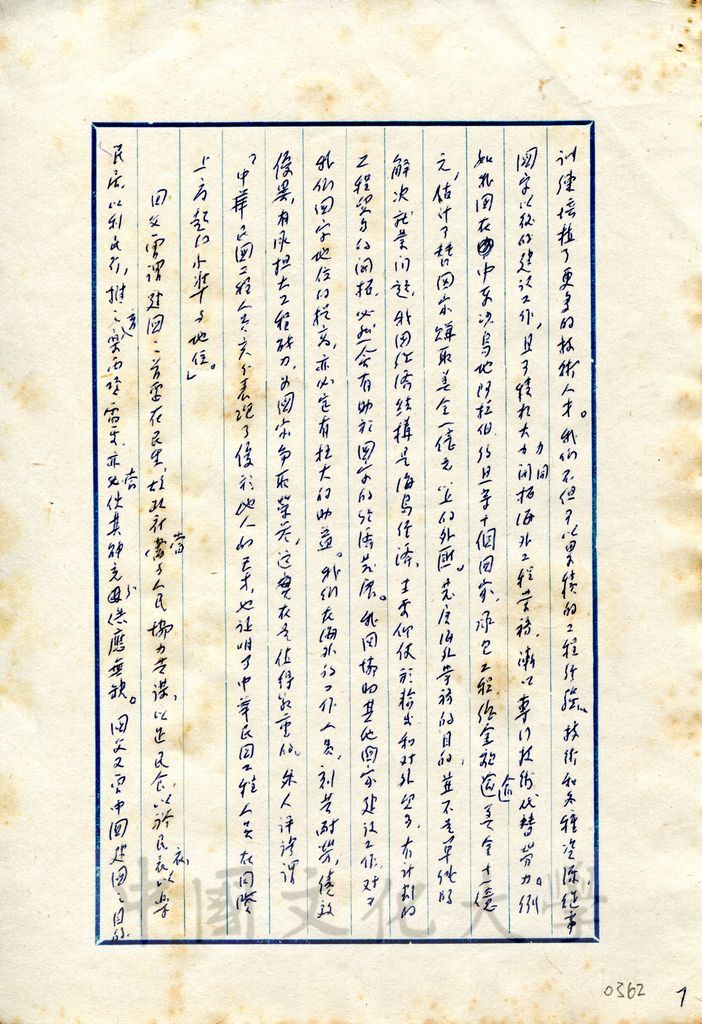 訓練培植了更多的技術人才。我們不但可以累積的工程經驗、技術和各種資源從事
國家以後的建設工作,且可積極大力開拓海外工程業務,漸以專門技術代替勞力。例
如我國在中東沙烏地阿拉伯、約旦等十個國家,承包工程總金額逾美金十一億
元,估計可替國家賺取美金一億元以上的外匯。發展海外業務的目的,並不是單純的
解決就業問題,我國經濟結構是海島經濟,主要仰仗於輸出和對外貿易,有計劃的
工程貿易的開拓,必然會有助於國家的經濟發展。我國協助其他國家建設工作,對
我們國家地位的提高,亦必定有極大的助益。我們在海外的工作人員,刻苦耐勞,績效
優異,有承擔大工程能力,為國家爭取榮譽,這實在是值得敬重的。外人評論謂
「中華民國工程人員充分表現了優於他人的才,也證明了中華民國工程人員在國際
上應有的水準與地位。」
國父嘗謂建國之首要在民生,故政府當與人民協力共謀,以足民食,以裕民衣,以樂
民居,以利民行,推之育樂 亦必使其能充分供應無缺。國父又言中國建國之目的
中國文化大學
0362
7